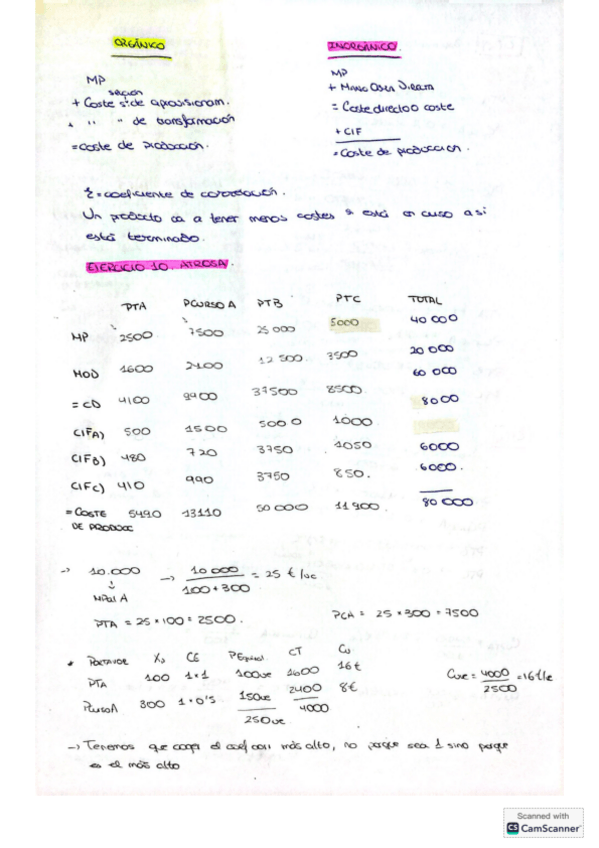 ORGÁNICO
INORGÁNICO.
MP
sección
+ Coste s. de aprovisionam.
+ " " de transformación
= coste de producción.
MP
+ Mano Obra Directa
= Coste directo o coste
+ CIF
= Coste de producción.
ξ = coeficiente de correlación.
Un producto va a tener menos costes si está en curso a si
está terminado.
EJERCICIO 10. ATROSA.
PTA PCURSO A PTB PTC TOTAL
MP 2500 7500 25 000 5000 40 000
MOD 1600 2400 12 500 3500 20 000
= CD 4100 9900 37500 8500 60 000
CIFA) 500 1500 5000 1000 8000
CIFB) 480 720 3750 1050 6000
CIFC) 410 990 3750 850. 6000.
= COSTE DE PRODUCC 5490 13110 50 000 11 900 80 000
-> 10.000 -> 10 000 / 100 + 300 = 25 €/uc
MPal A
PTA = 25 × 100 = 2500.
PCA = 25 × 300 = 7500
Xj CE PEquival. CT Cu
PTA 100 1·1 100ue 1600 16€
PCursoA 300 1·0'5 150ue 2400 8€
250ue 4000
Cue = 4000 / 2500 = 16€/ue
-> Tenemos que coger el coef con más alto, no porque sea 1 sino porque
es el más alto
Scanned with
CS CamScanner